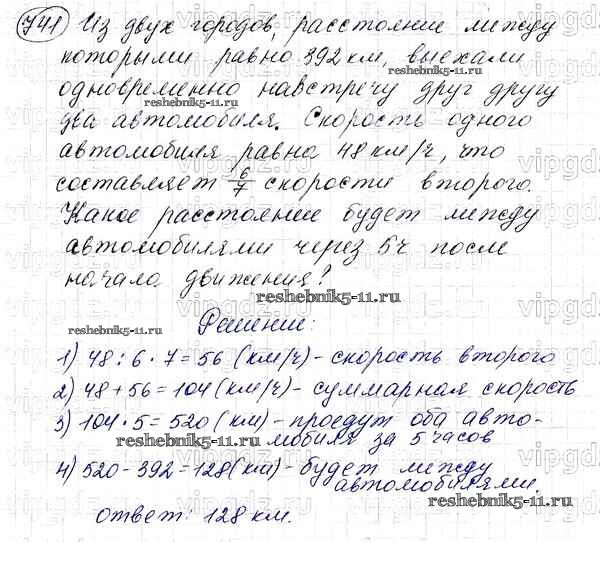 741 Из двух городов, расстояние между
которыми равно 392 км, выехали
одновременно навстречу друг другу
reshebnik5-11.ru
два автомобиля. Скорость одного
автомобиля равна 48 км/ч, что
составляет 6/7 скорости второго.
Какое расстояние будет между
автомобилями через 5ч после
начала движения?
reshebnik5-11.ru
Решение:
reshebnik5-11.ru
1) 48 : 6 · 7 = 56 (км/ч) - скорость второго
2) 48 + 56 = 104 (км/ч) - суммарная скорость
3) 104 · 5 = 520 (км) - проедут оба авто-
reshebnik5-11.ru мобиля за 5 часов
4) 520 - 392 = 128 (км) - будет между
автомобилями.
reshebnik5-11.ru
ответ: 128 км.
vipgdz.ru